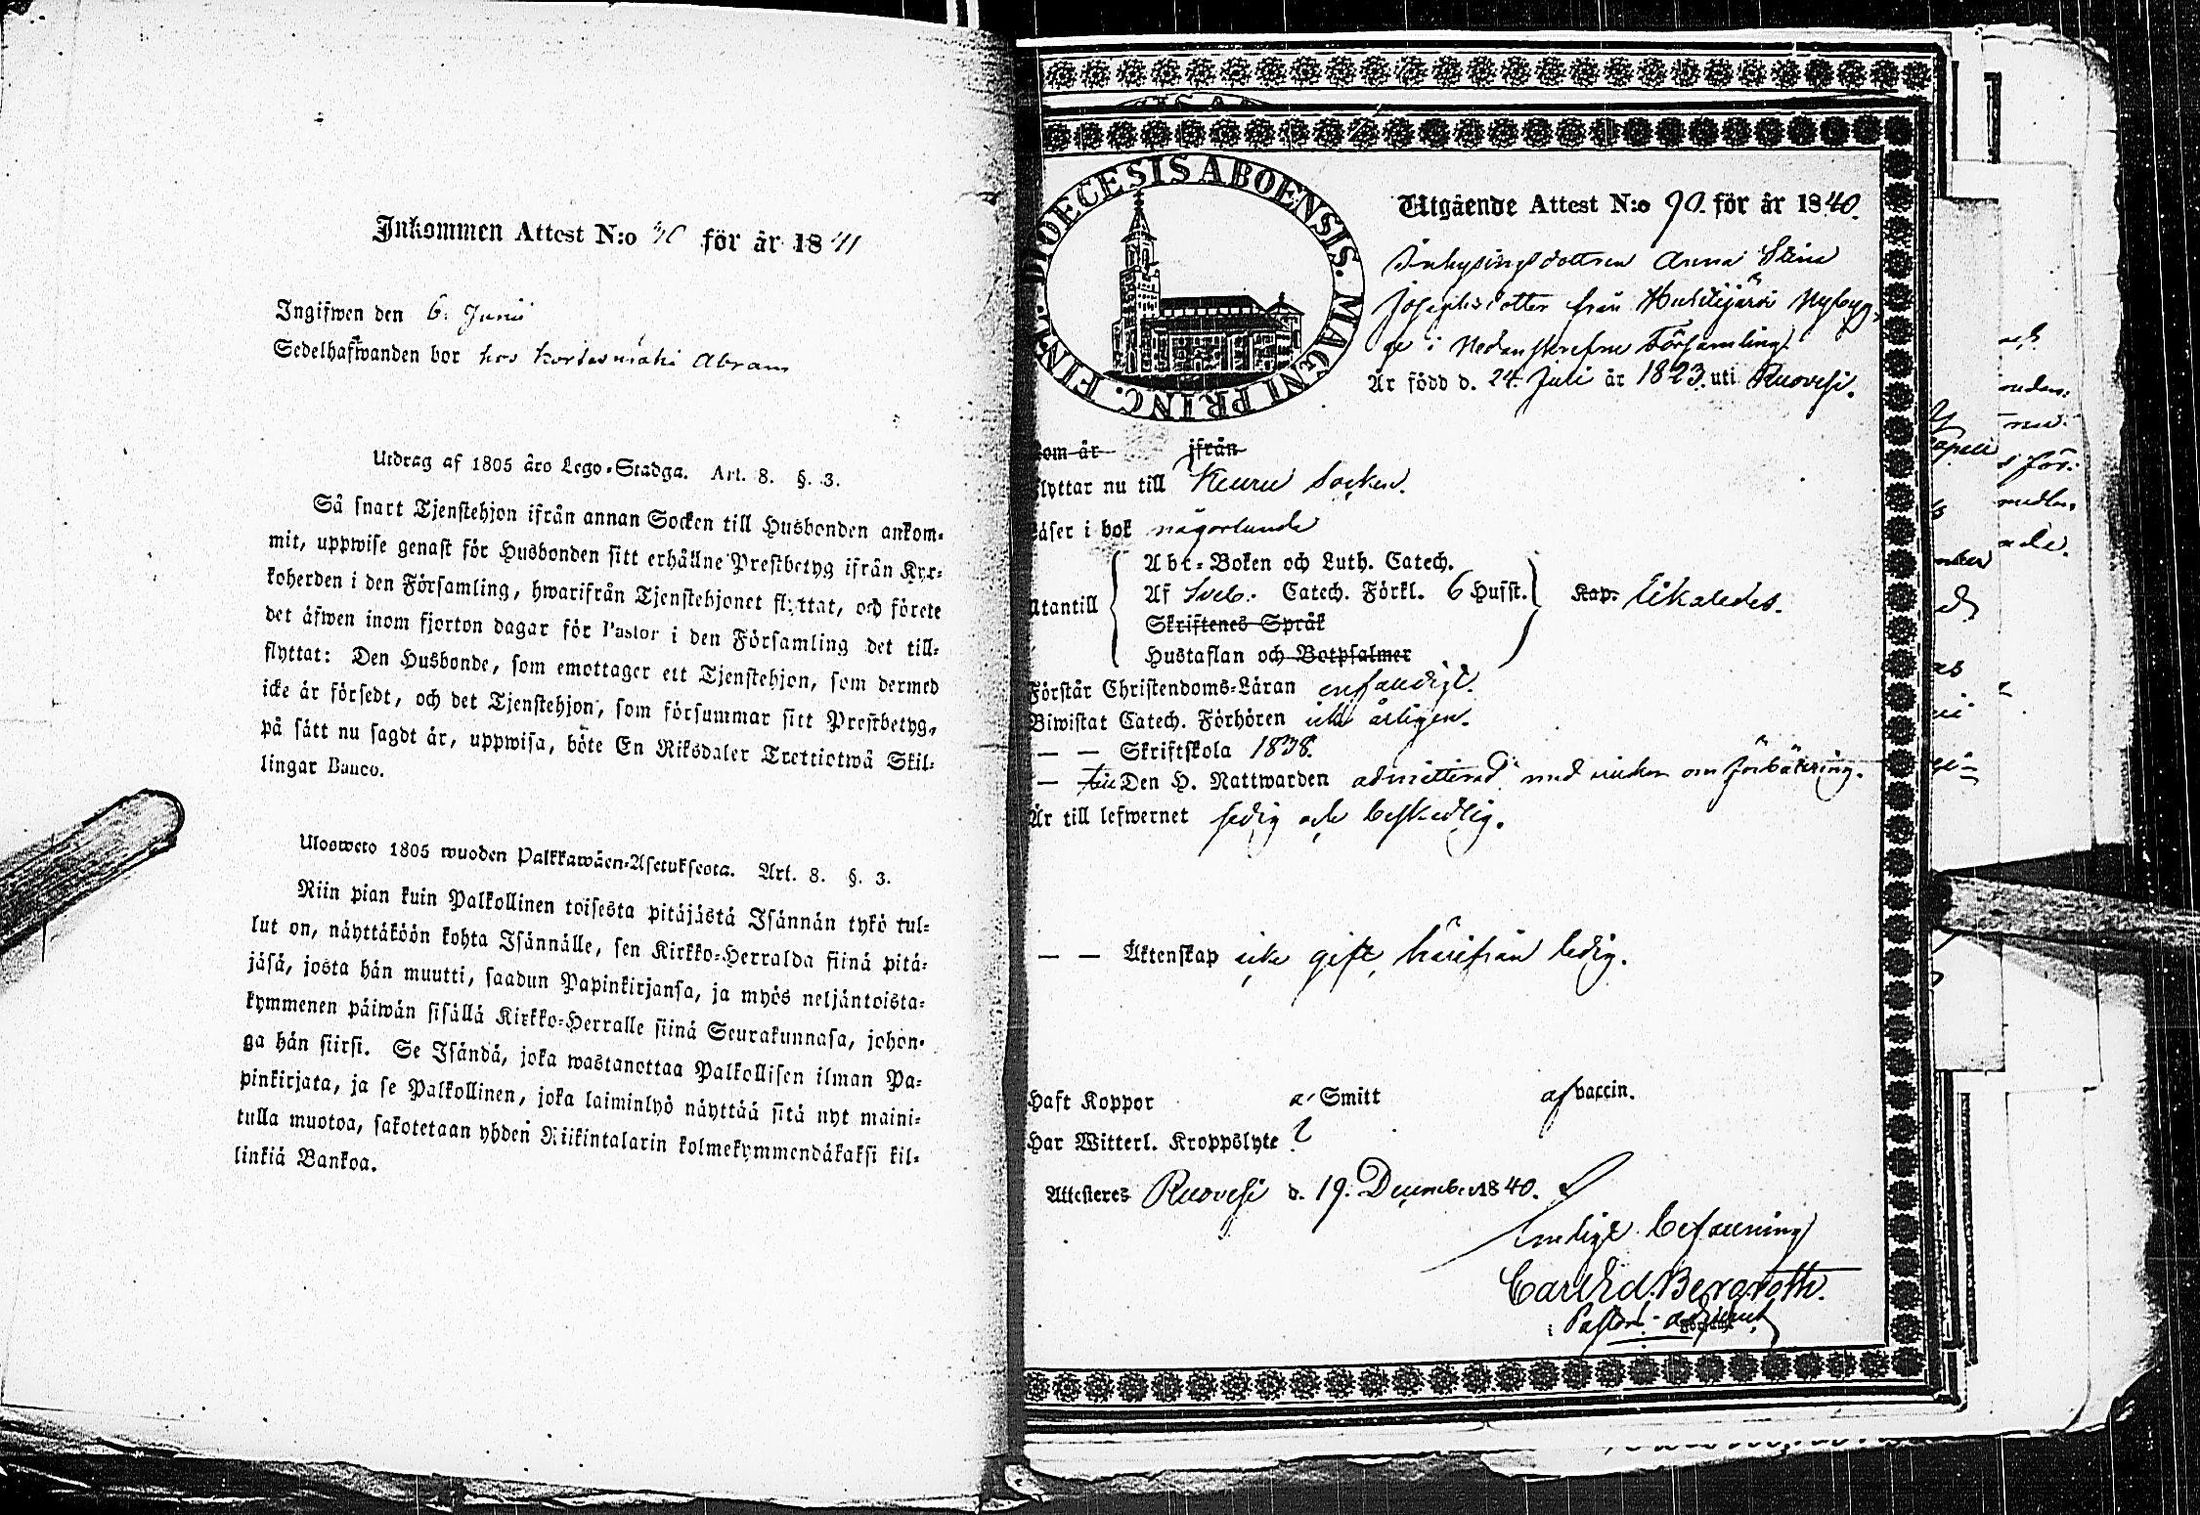 Inkommen Attest N:o 40 för år 1841
Ingifwen den 6. Junii
Sedelhafwanden bor hos Kortesmäki Abram
Utdrag af 1805 års Lego-Stadga. Art. 8. §. 3.
Så snart Tjenstehjon ifrån annan Socken till Husbonden ankom-
mit, uppwise genast för Husbonden sitt erhållne Prestbetyg ifrån Kyr-
koherden i den Församling, hwarifrån Tjenstehjonet flyttat, och förete
det äfwen inom fjorton dagar för Pastor i den Församling det till-
flyttat: Den Husbonde, som emottager ett Tjenstehjon, som dermed
icke är försedt, och det Tjenstehjon, som försummar sitt Prestbetyg,
på sätt nu sagdt är, uppwisa, böte En Riksdaler Trettiotwå Skil-
lingar Banco.
Ulosweto 1805 wuoden Palkkawäen-Asetuksesta. Art. 8. §. 3.
Niin pian kuin Palkollinen toisesta pitäjästä Isännän tykö tul-
lut on, näyttäköön kohta Isännälle, sen Kirkko-Herralda siinä pitä-
jäsä, josta hän muutti, saadun Papinkirjansa, ja myös neljäntoista-
kymmenen päiwän sisällä Kirkko-Herralle siinä Seurakunnasa, johon-
ga hän siirsi. Se Isändä, joka wastanottaa Palkollisen ilman Pa-
pinkirjata, ja se Palkollinen, joka laiminlyö näyttää sitä nyt maini-
tulla muotoa, sakotetaan yhden Riikintalarin kolmekymmendäkaksi kil-
linkiä Bankoa.
DIOECESIS ABOENSIS. MAGNI PRINC. FINL.
Utgående Attest N:o 90. för år 1840.
Inhysingsdottren Anna Stina
Josephsdotter från Huhtijärvi Nybyg-
ge i Nedanskrefne Församling.
Är född d. 24. Juli år 1823. uti Ruovesi.
som är ifrån
flyttar nu till Keuru Socken.
Läser i bok någorlunda
Abc-Boken och Luth. Catech.
Utantill Af Sveb. Catech. Förkl. 6 Hufst. Kap. likaledes.
Skriftenes Språk
Hustaflan och Botpsalmer
Förstår Christendoms-Läran enfaldigt.
Biwistat Catech. Förhören icke årligen.
— — Skriftskola 1838.
— till Den H. Nattwarden admitterad med wilkor om förbättring.
Är till lefwernet sedig och beskedlig.
— — Äktenskap icke gift, härifrån ledig.
Haft Koppor a. Smitt af vaccin.
Har Witterl. Kroppslyte
Attesteres Ruovesi d. 19. December 1840.
Carl Ed. Bergroth.
Pastors-adjunct